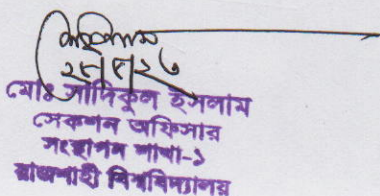 ২৮|৪|২৬
মোঃ সাদিকুল ইসলাম
সেকশন অফিসার
সংস্থাপন শাখা-১
রাজশাহী বিশ্ববিদ্যালয়